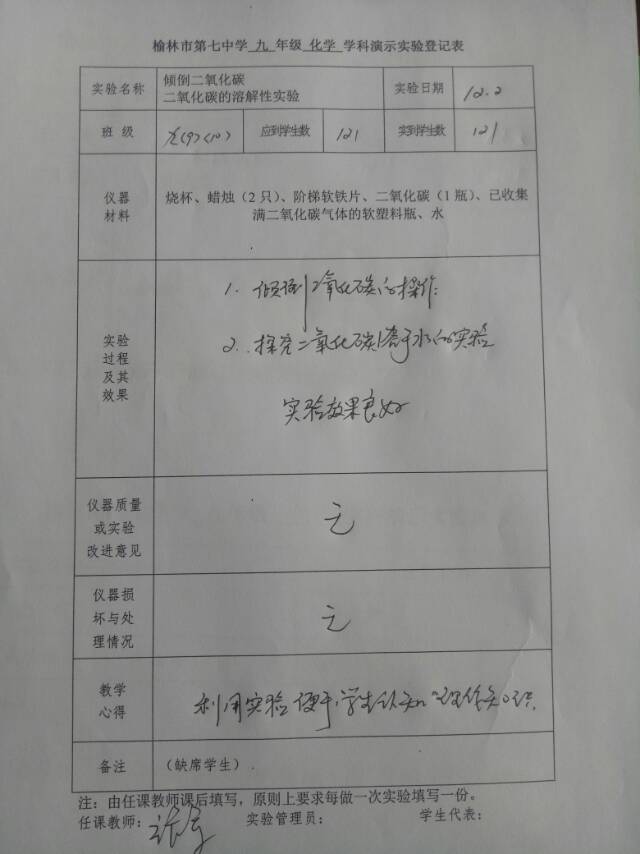 榆林市第七中学 九 年级 化学 学科演示实验登记表
实验名称
倾倒二氧化碳
二氧化碳的溶解性实验
实验日期
12.2
班 级
九(9)(10)
应到学生数
121
实到学生数
121
仪器
材料
烧杯、蜡烛（2只）、阶梯软铁片、二氧化碳（1瓶）、已收集
满二氧化碳气体的软塑料瓶、水
实验
过程
及其
效果
1. 倾倒二氧化碳的操作
2. 探究二氧化碳溶于水的实验
实验效果良好
仪器质量
或实验
改进意见
无
仪器损
坏与处
理情况
无
教学
心得
利用实验便于学生认知
备注
（缺席学生）
注：由任课教师课后填写，原则上要求每做一次实验填写一份。
任课教师： 实验管理员： 学生代表：